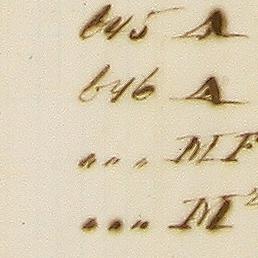 645 A
646 A
" " " MF
" " " M